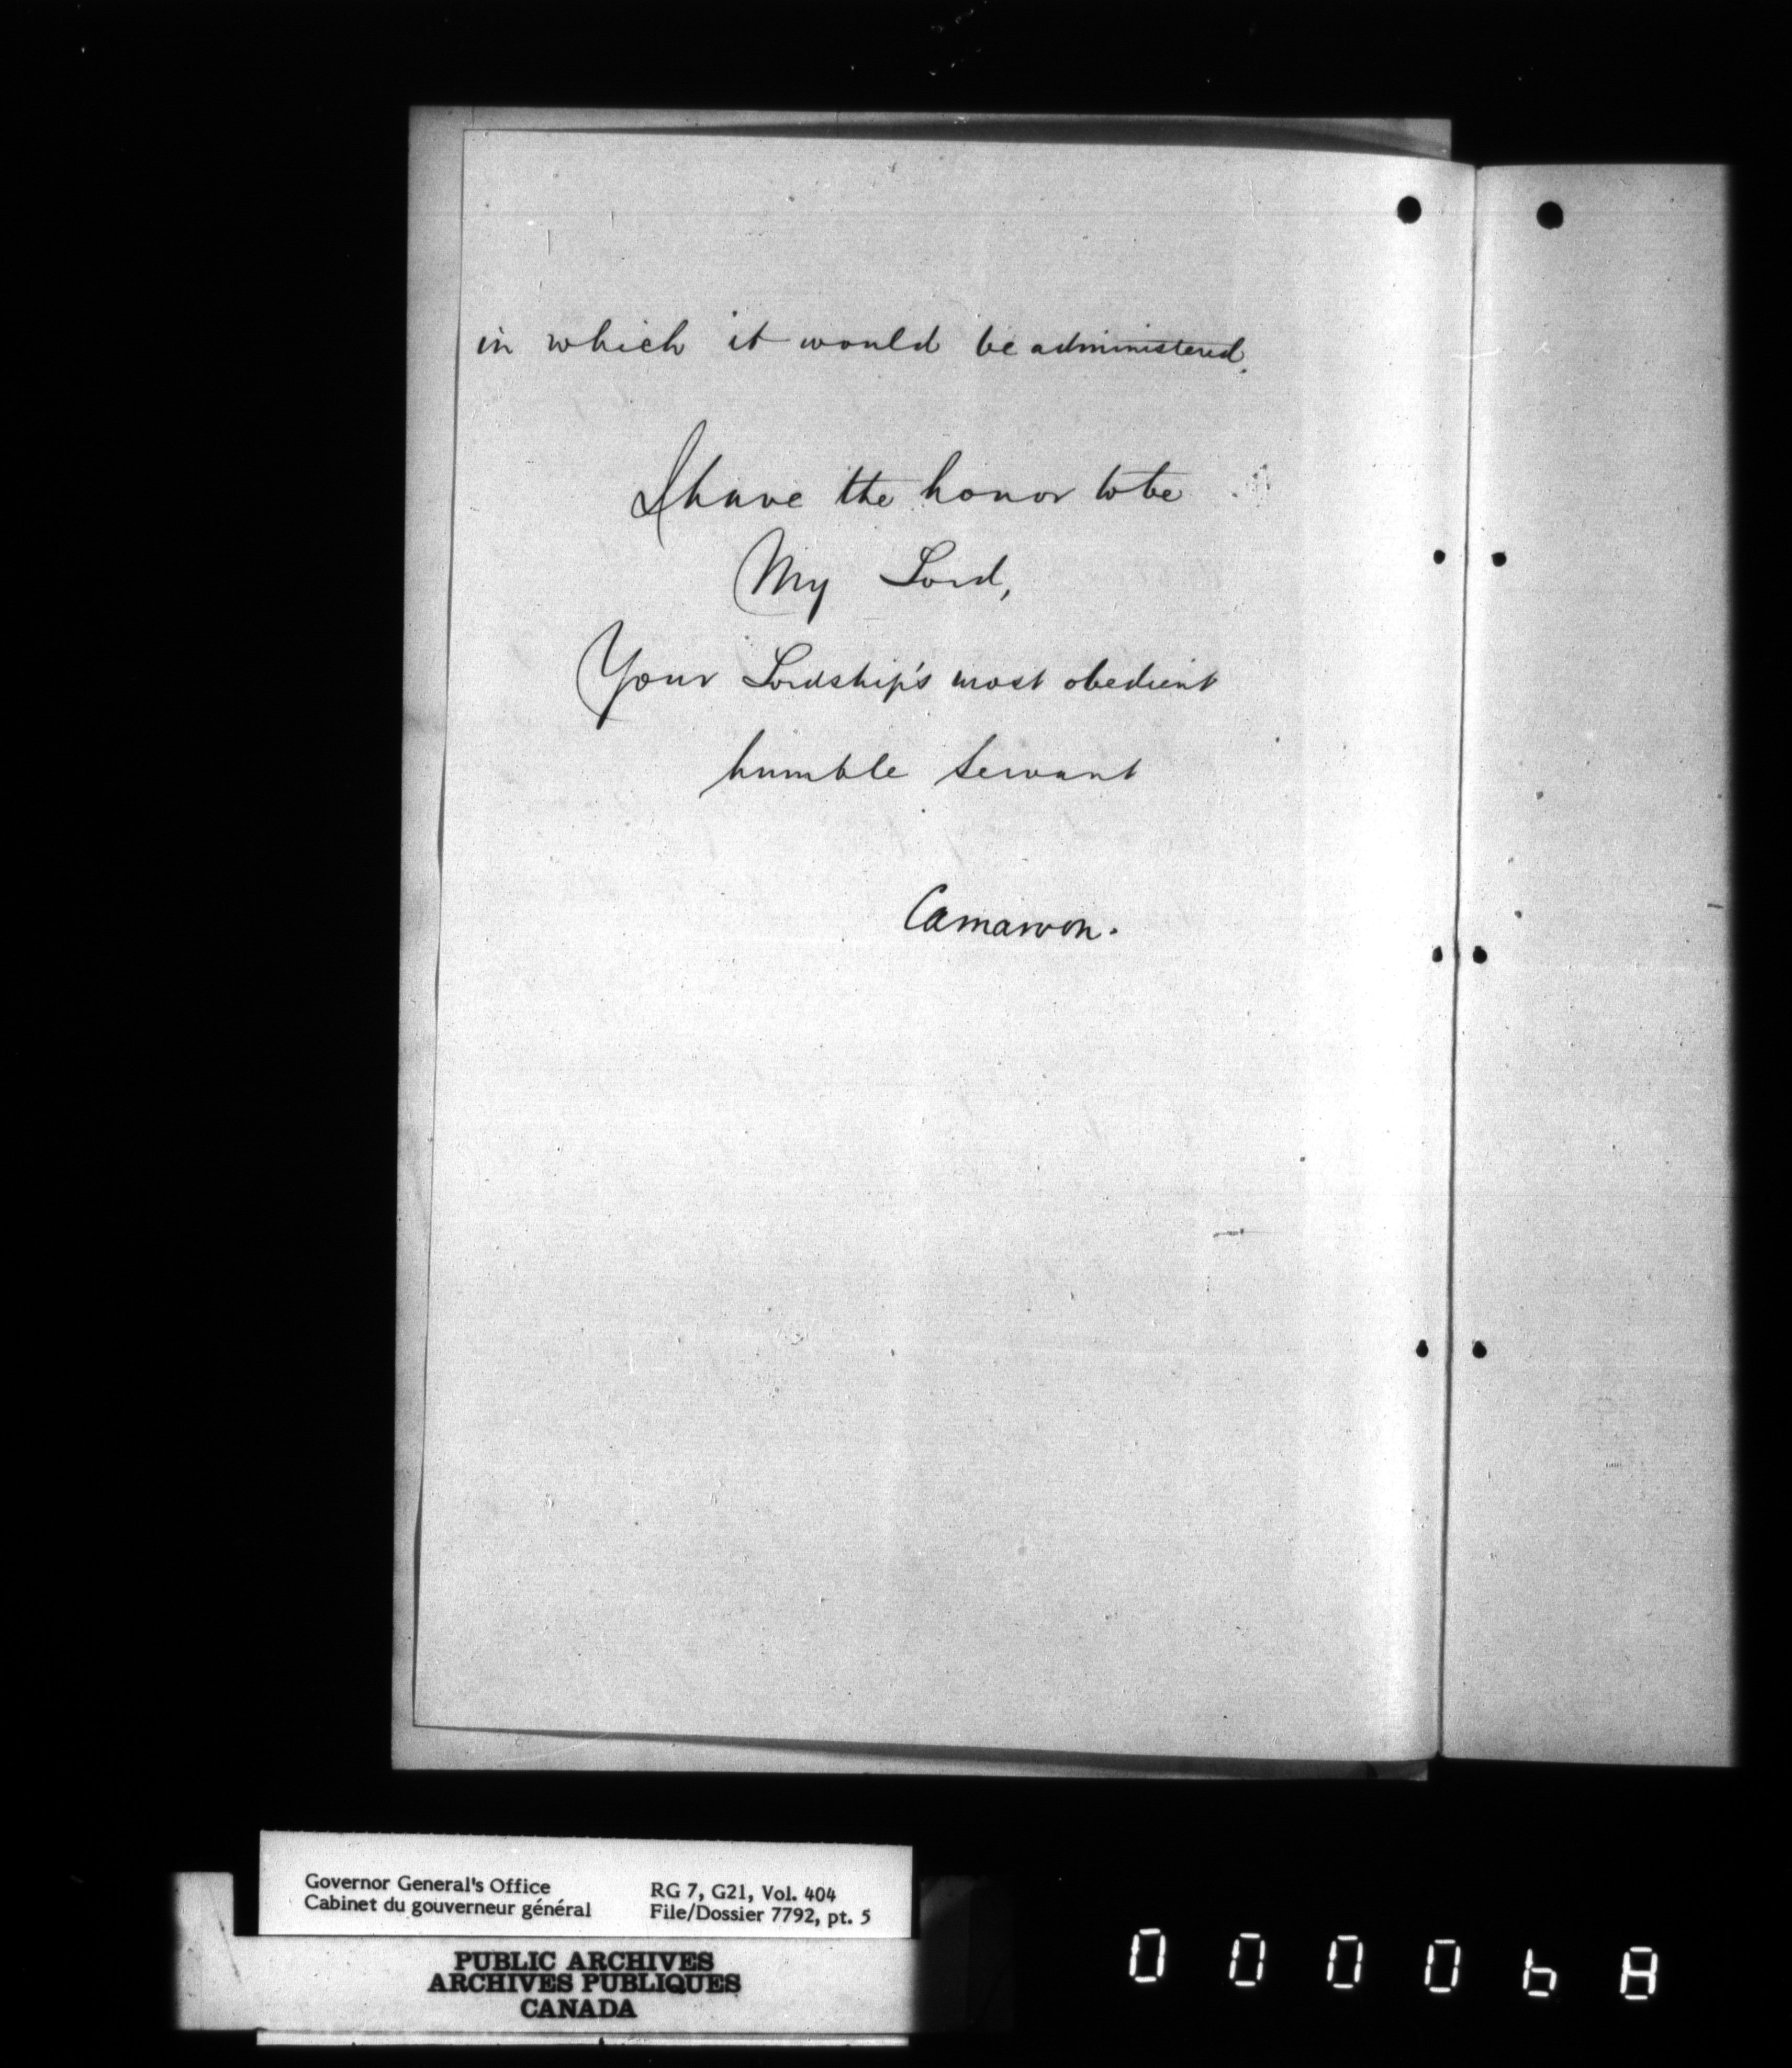 in which it would be administered.
I have the honor to be
My Lord,
Your Lordship's most obedient
humble Servant
Carnarvon.
Governor General's Office
Cabinet du gouverneur général
RG 7, G21, Vol. 404
File/Dossier 7792, pt. 5
PUBLIC ARCHIVES
ARCHIVES PUBLIQUES
CANADA
000068